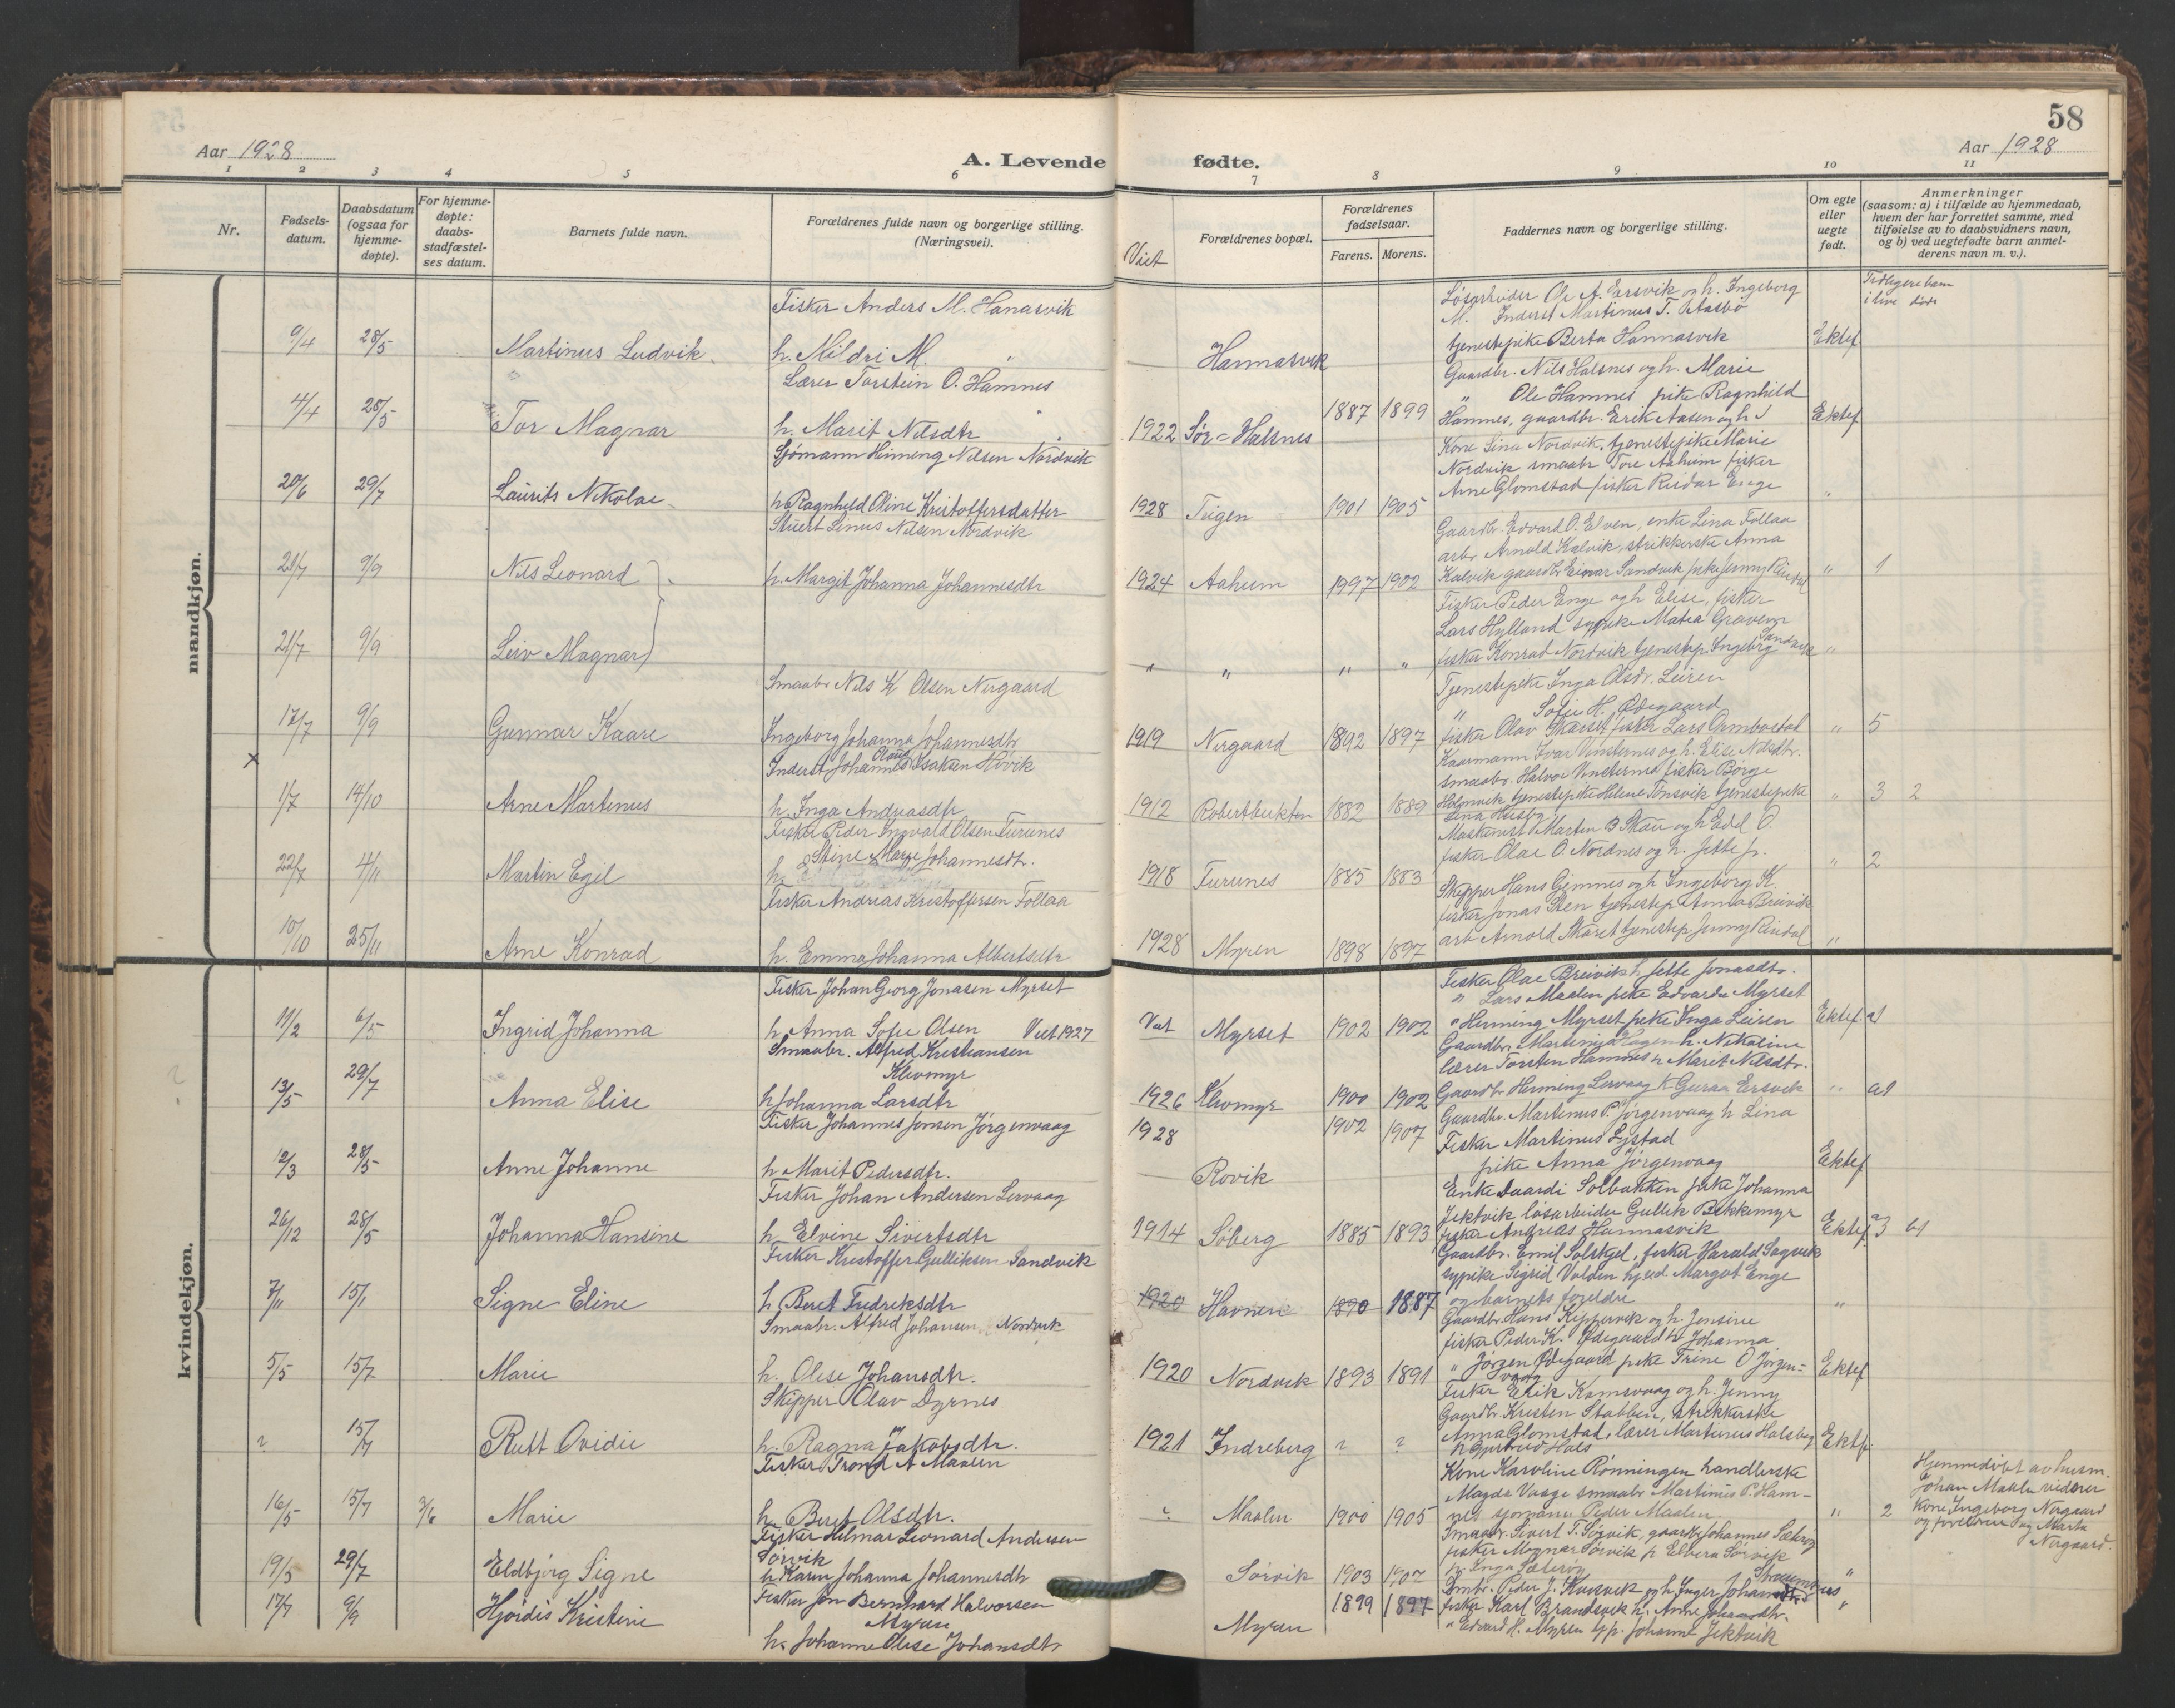 58
Aar 1928
A. Levende
fødte.
Aar 1928
1 2 3 4 5 6 7 8 9 10 11
Nr.
Fødsels-
datum.
Daabsdatum
(ogsaa for
hjemme-
døpte).
For hjemme-
døpte:
daabs-
stadfæstel-
ses datum.
Barnets fulde navn.
Forældrenes fulde navn og borgerlige stilling.
(Næringsvei).
Viet
Forældrenes bopæl.
Forældrenes
fødselsaar.
Farens. Morens.
Faddernes navn og borgerlige stilling.
Om egte
eller
uegte
født.
Anmerkninger
(saasom: a) i tilfælde av hjemmedaab,
hvem der har forrettet samme, med
tilføielse av to daabsvidners navn,
og b) ved uegtefødte barn anmel-
derens navn m. v.).
Tidligere barn
i live døde
mandkjøn.
Fisker Anders M. Hanasvik
9/4 28/5 Martinus Ludvik h. Mildri M. "
Hannasvik
Løsarbeider Ole A. Ersvik og h. Ingeborg
M. Inderst Martinus T. Aasbø
tjenestepike Berta Hannasvik Ektef
Lærer Torstein O. Hamnes
4/4 28/5 Tor Magnar h. Marit Nilsdtr
1922 Sør-Halsnes 1887 1899
Gaardbr. Nils Halsnes og h. Marie
" Ole Hamnes pike Ragnhild
Hamnes, gaardbr. Erik Aasen og h. Ektef
Sjømann Heming Nilsen Nordvik
20/6 29/7 Laurits Nikolai h. Ragnhild Oline Kristoffersdatter
1928 Teigen 1901 1905
Kone Lina Nordvik, tjenestepike Marie
Nordvik smaabr Tore Aaheim fisker
Arne Glomstad fisker Reidar Enge "
Stuert Linus Nilsen Nordvik
21/7 9/9 Nils Leonard h. Margit Johanna Johannesdtr
1924 Aaheim 1997 1902
Gaardbr Edvard O. Elven, enke Lina Follaa
arb. Arnold Kalvik, strikkerske Anna
Kalvik gaardbr Einar Sandvik pike Jenny Rindal " 1
21/7 9/9 Leiv Magnar
" " " "
Fisker Peder Enge og h Elise, fisker
Lars Hylland sypike Matea Gravem
fisker Konrad Nordvik tjenestep. Ingeborg Sandvik "
Smaabr Nils K Olsen Nergaard
17/7 9/9 Gunnar Kaare Ingeborg Johanna Johannesdtr
1919 Nergaard 1892 1897
Tjenestepike Inga Olsdr. Leiren
" Sofie H. Ødegaard
fisker Olav Skarset fisker Lars Ormbostad " 5
x
Inderst Johannes Olaus Isaksen Høvik
1/7 14/10 Arne Martinus h. Inga Andreasdtr
1912 Robertbukten 1882 1889
Kaarmann Ivar Vinsternes og h. Elise Nilsdtr.
smaabr. Halvor Vinsternes fisker Børge
Holmvik tjenestepike Helene Tønsvik tjenestepike " 3 2
Lina Husby
Fisker Peder Ingvald Olsen Furunes
22/7 4/11 Martin Egil h. Stine Marie Johannesdtr.
1918 Furunes 1885 1883
Maskinist Martin B Skau og h Edel O.
fisker Olae O. Nordnes og h. Jette p. " 2
Fisker Andreas Kristoffersen Follaa
10/10 25/11 Arne Konrad h. Emma Johanna Albertsdtr
1928 Myren 1898 1897
Skipper Hans Gimnes og h Ingeborg K.
fisker Jonas Steen tjenestep Anna Breivik
arb Arnold Skaret tjenestep Jenny Rindal "
kvindekjøn.
Fisker Johan Georg Jonasen Myrset
11/2 6/5 Ingrid Johanna h. Anna Sofie Olsen Viet 1927
Viet Myrset 1902 1902
Fisker Olae Breivik h Jette Jonasdtr.
" Lars Maalen pike Edvarda Myrset
" Heming Myrset pike Inga Leiren Ektef a1
Smaabr. Alfred Kristiansen
Klevmyr
13/5 29/7 Anna Elise h Johanna Larsdtr
1926 Klevmyr 1900 1902
Gaardbr. Martinus Hagen h. Nikoline
lærer Torsten Hamnes h Marit Nilsdtr.
Gaardbr Heming Lervaag k Guraa Ersvik " a1
Fisker Johannes Jonsen Jørgenvaag
12/3 28/5 Anne Johanne h Marit Pedersdtr.
1928 Rovik 1902 1907
Gaardbr. Martinus P. Jørgenvaag h Lina
Fisker Martinus Lystad
pike Anna Jørgenvaag Ektef
Fisker Johan Andersen Lervaag
26/12 28/5 Johanna Hansine h. Elvine Sivertsdtr
1914 Søberg 1885 1893
Enke Saardi Solbakken pike Johanna
Jektvik løsarbeider Gullik Bekkemyr
fisker Andreas Hannasvik Ektef a3 b1
Fisker Kristoffer Gulliksen Sandvik
7/11 15/1 Signe Eline h. Beret Fredriksdtr
1920 Havnen 1890 1887
Gaardbr. Emil Solskjel, fisker Harald Sagvik
sypike Sigrid Valden hj.sed. Margot Enge
og barnets foreldre "
Smaabr. Alfred Johansen Nordvik
5/5 15/7 Marie h. Olise Johansdtr.
1920 Nordvik 1893 1891
Gaardbr. Hans Kippervik og h. Jensine
fisker Peder K. Ødegaard h Johanna
" Jørgen Ødegaard pike Trine O Jørgen-
vaag Ektef
Skipper Olav Dyrnes
? 15/7 Rutt Ovidie h. Ragna Jakobsdtr.
1921 Indreberg ? ?
Fisker Erik Kamsvaag og h. Jenny
Gaardbr. Kristen Stabben, strikkerske
Anna Glomstad, lærer Martinus Halsbog Ektef.
h Gjertrud Hals
Fisker Trond A Maalen
16/5 15/7 3/6 Marie h. Beret Olsdtr.
? Maalen 1900 1905
Kone Karoline Rønningen handlerske
Magda Vaage smaabr Martinus P. Ham-
nes sjømann Peder Maalen " 2
Hjemmedøbt av husm.
Johan Maalen vidner
kone Ingeborg Nergaard
og foreldre og Marta
Nergaard.
Fisker Hilmar Leonard Andersen
Sørvik
19/5 29/7 Eldbjørg Signe h Karen Johanna Johannesdtr
Sørvik 1903 1907
Smaabr. Sivert T. Sørvik, gaardbr Johannes Sæterøy
fisker Magnar Sørvik p Elbera Sørvik
p. Inga Sæterøy "
Fisker Jon Bernhard Halvorsen
Myren
17/7 9/9 Hjørdis Kristine h. Johanne Olise Johansdtr
Myren 1899 1897
Smbr. Peder J. Korsvik og h. Inger Johansdtr
fisker Karl Brandsvik h. Anne Johansdtr. "
" Edvard H. Myren tjp. Johanne Jektvik